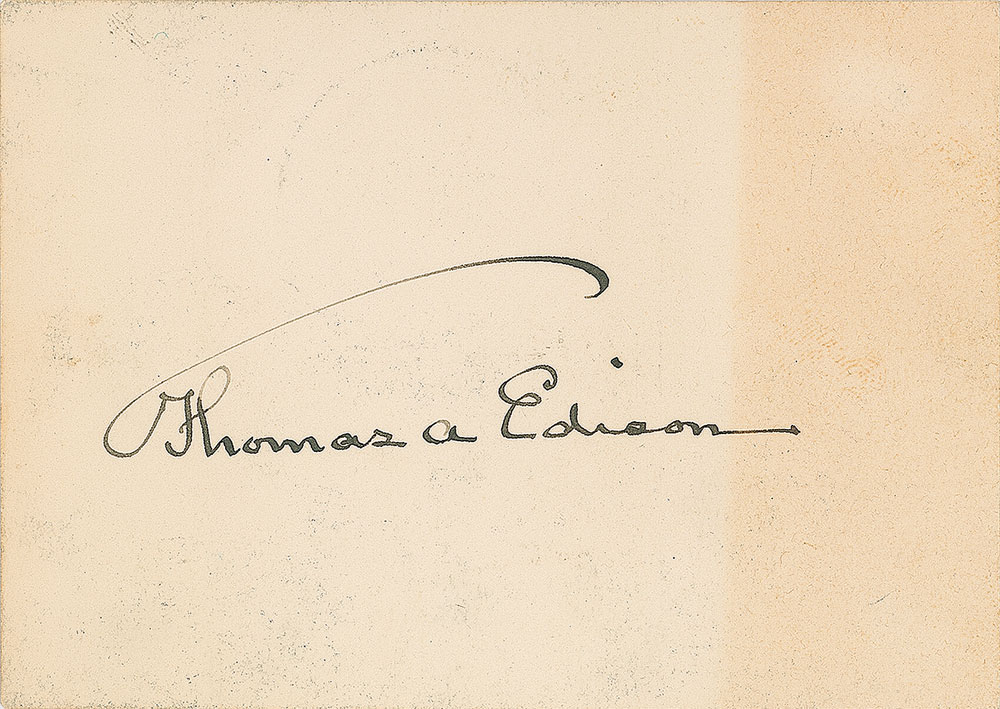 Thomas a Edison